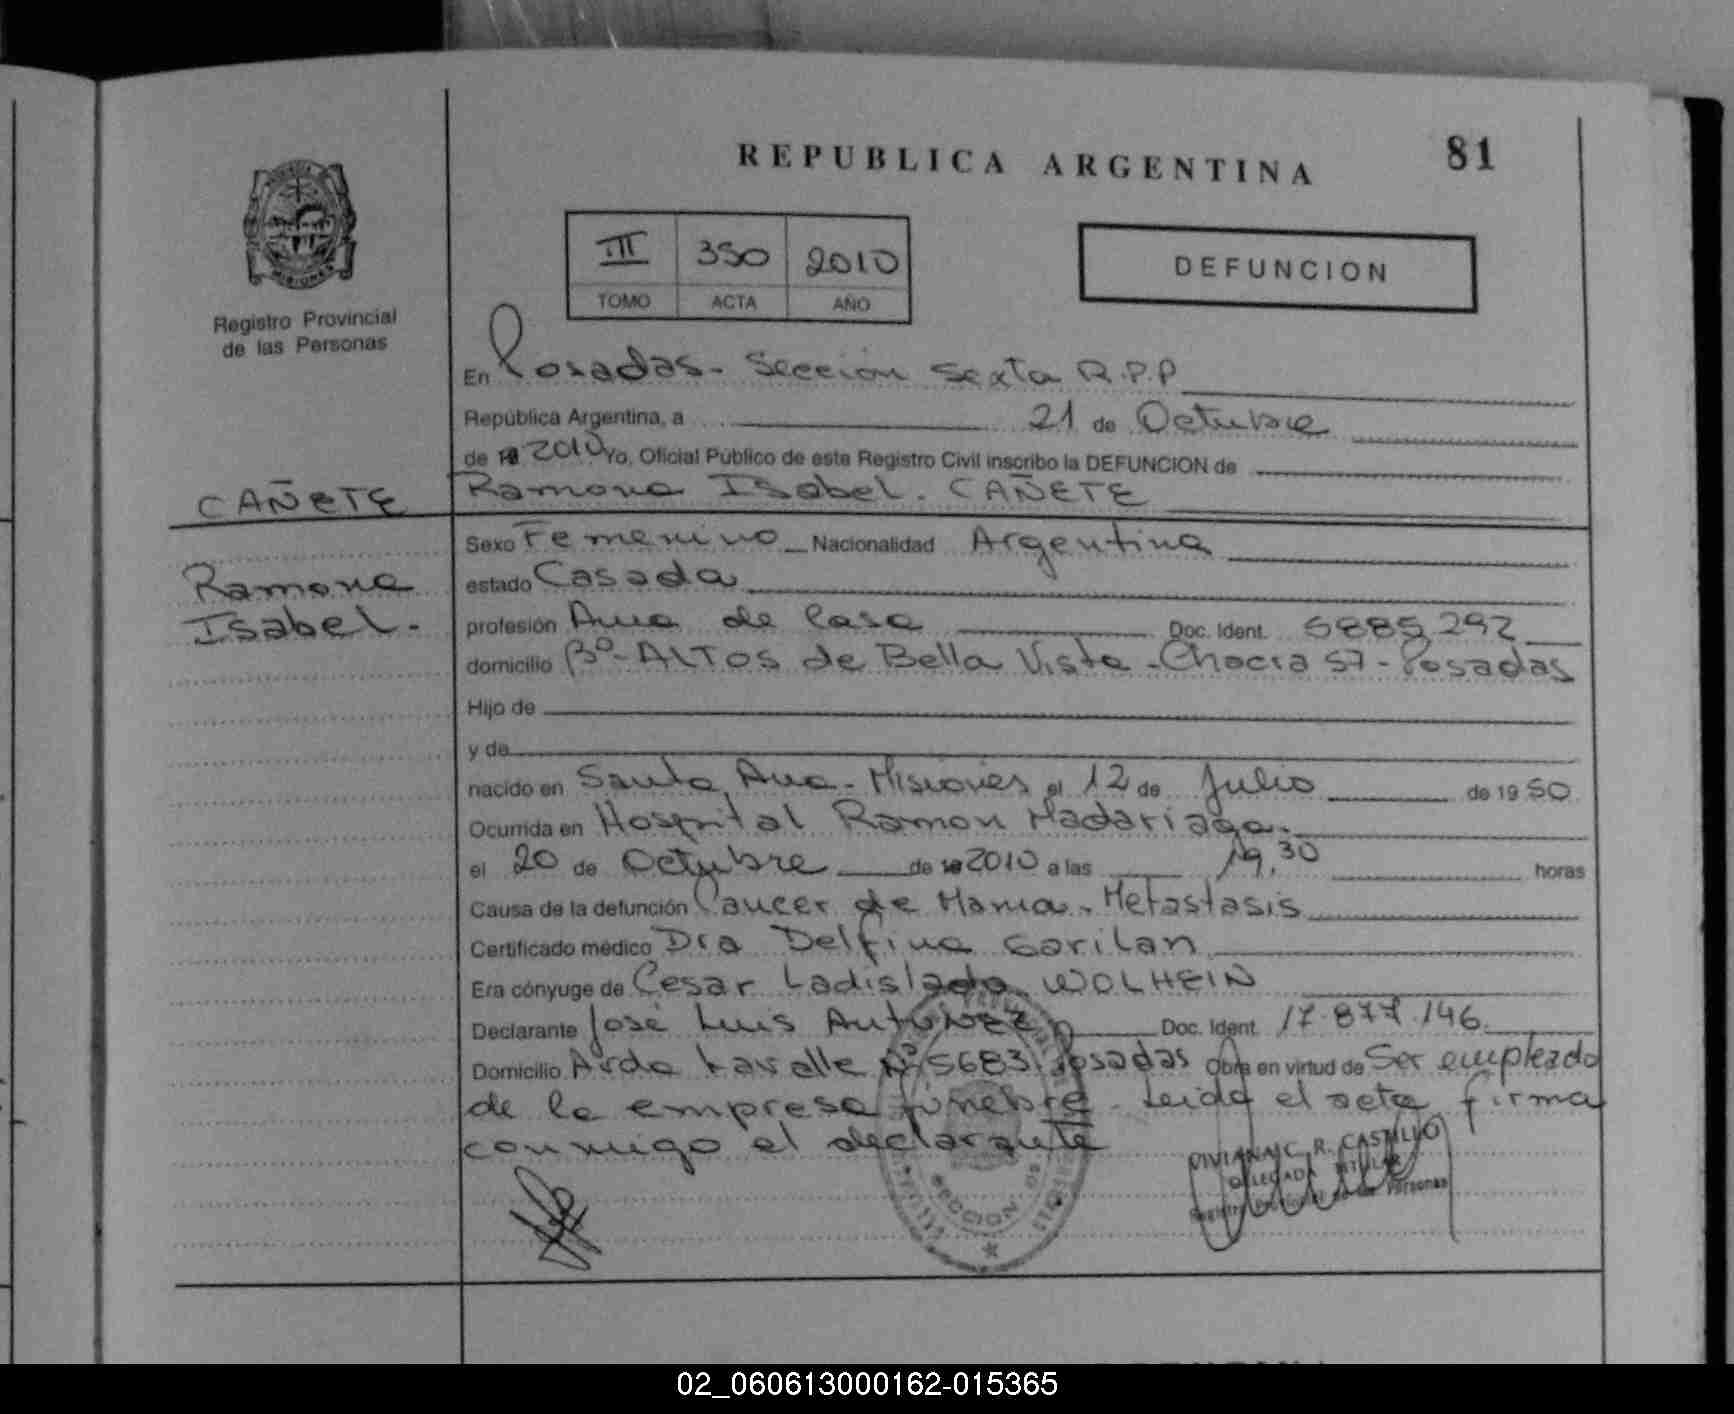 REPUBLICA ARGENTINA
81
MISIONES
Registro Provincial
de las Personas
III 350 2010
TOMO ACTA AÑO
DEFUNCION
En Posadas - Seccion Sexta R.P.P
República Argentina, a 21 de Octubre
de 19 2010 Yo, Oficial Público de este Registro Civil inscribo la DEFUNCION de
Ramona Isabel. CAÑETE
CAÑETE
Ramona
Isabel.-
Sexo Femenino Nacionalidad Argentina
estado Casada
profesión Ama de Casa Doc. Ident. 5885292
domicilio Bº- ALTOS de Bella Vista - Chacra 57 - Posadas
Hijo de
y de
nacido en Santa Ana - Misiones el 12 de Julio de 19 50
Ocurrida en Hospital Ramon Madariaga.
el 20 de Octubre de 19 2010 a las 19,30 horas
Causa de la defunción Cancer de Mama - Metastasis
Certificado médico Dra Delfina Garilan
Era cónyuge de Cesar Ladislado WOLHEIN
Declarante José Luis Antunez Doc. Ident. 17.877.146
Domicilio Avda Lavalle Nº 5683 Posadas Obra en virtud de Ser empleado
de la empresa fúnebre - Leida el acta firma
conmigo el declarante
SECCION
VIVIANA C. R. CASTILLO
DELEGADA TITULAR
Registro Provincial de las Personas
02_060613000162-015365